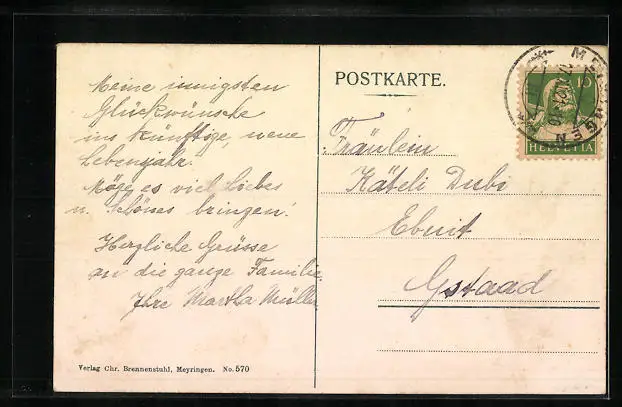 Meine innigsten
Glückwünsche
ins künftige, neue
Lebensjahr.
Möge es viel Liebes
u. Schönes bringen!
Herzliche Grüsse
an die ganze Familie.
Ihre Martha Müller
Verlag Chr. Brennenstuhl, Meyringen. No. 570
POSTKARTE.
Fräulein
Käteli Dubi
Ebnit
Gstaad
MEIRINGEN
10
HELVETIA